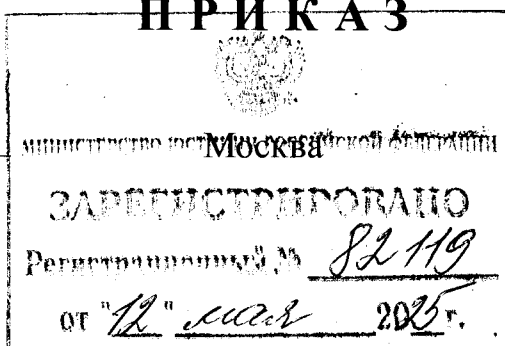 ПРИКАЗ
МИНИСТЕРСТВО ЮСТИЦИИ РОССИЙСКОЙ ФЕДЕРАЦИИ
Москва
ЗАРЕГИСТРИРОВАНО
Регистрационный № 82119
от "12" мая 2025 г.